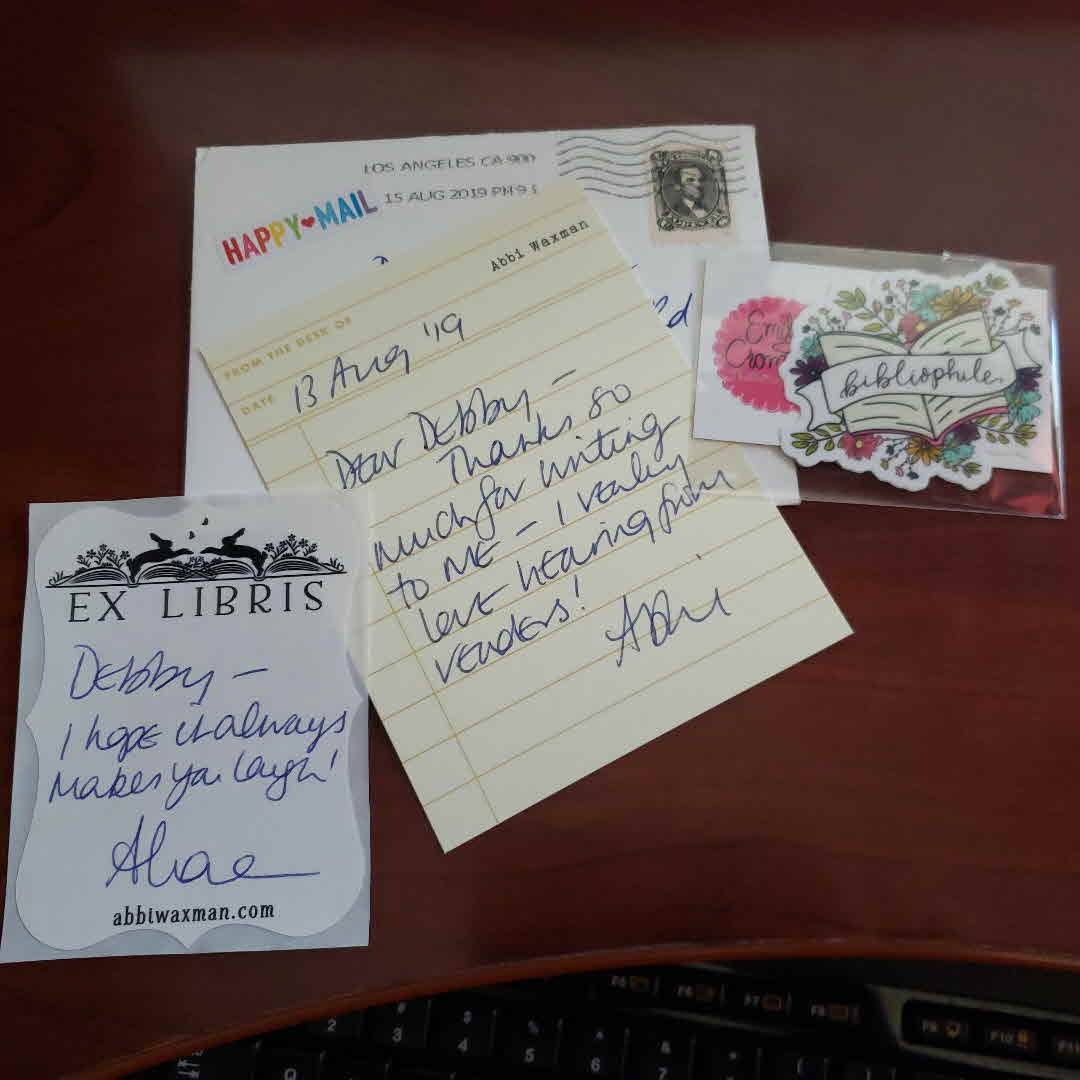 LOS ANGELES CA 900
15 AUG 2019 PM 9
HAPPY MAIL
Abbi Waxman
FROM THE DESK OF
DATE 13 Aug '19
Dear Debby –
Thanks so
much for writing
to me – I really
love hearing from
readers!
Abbi
Rd
Emily
bibliophile
EX LIBRIS
Debby –
I hope it always
makes you laugh!
abbiwaxman.com
F5 F6 F7 F8 F9 F10 F11
# $ % ^ & * (
2 3 4 5 6 7
Q